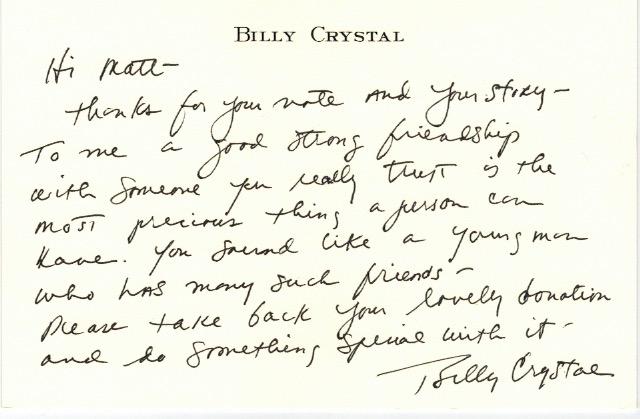 BILLY CRYSTAL
Hi Matt-
thanks for your note and your story-
To me a good strong friendship
with someone you really trust is the
most precious thing a person can
have. You sound like a young man
who has many such friends-
Please take back your lovely donation
and do something special with it-
Billy Crystal